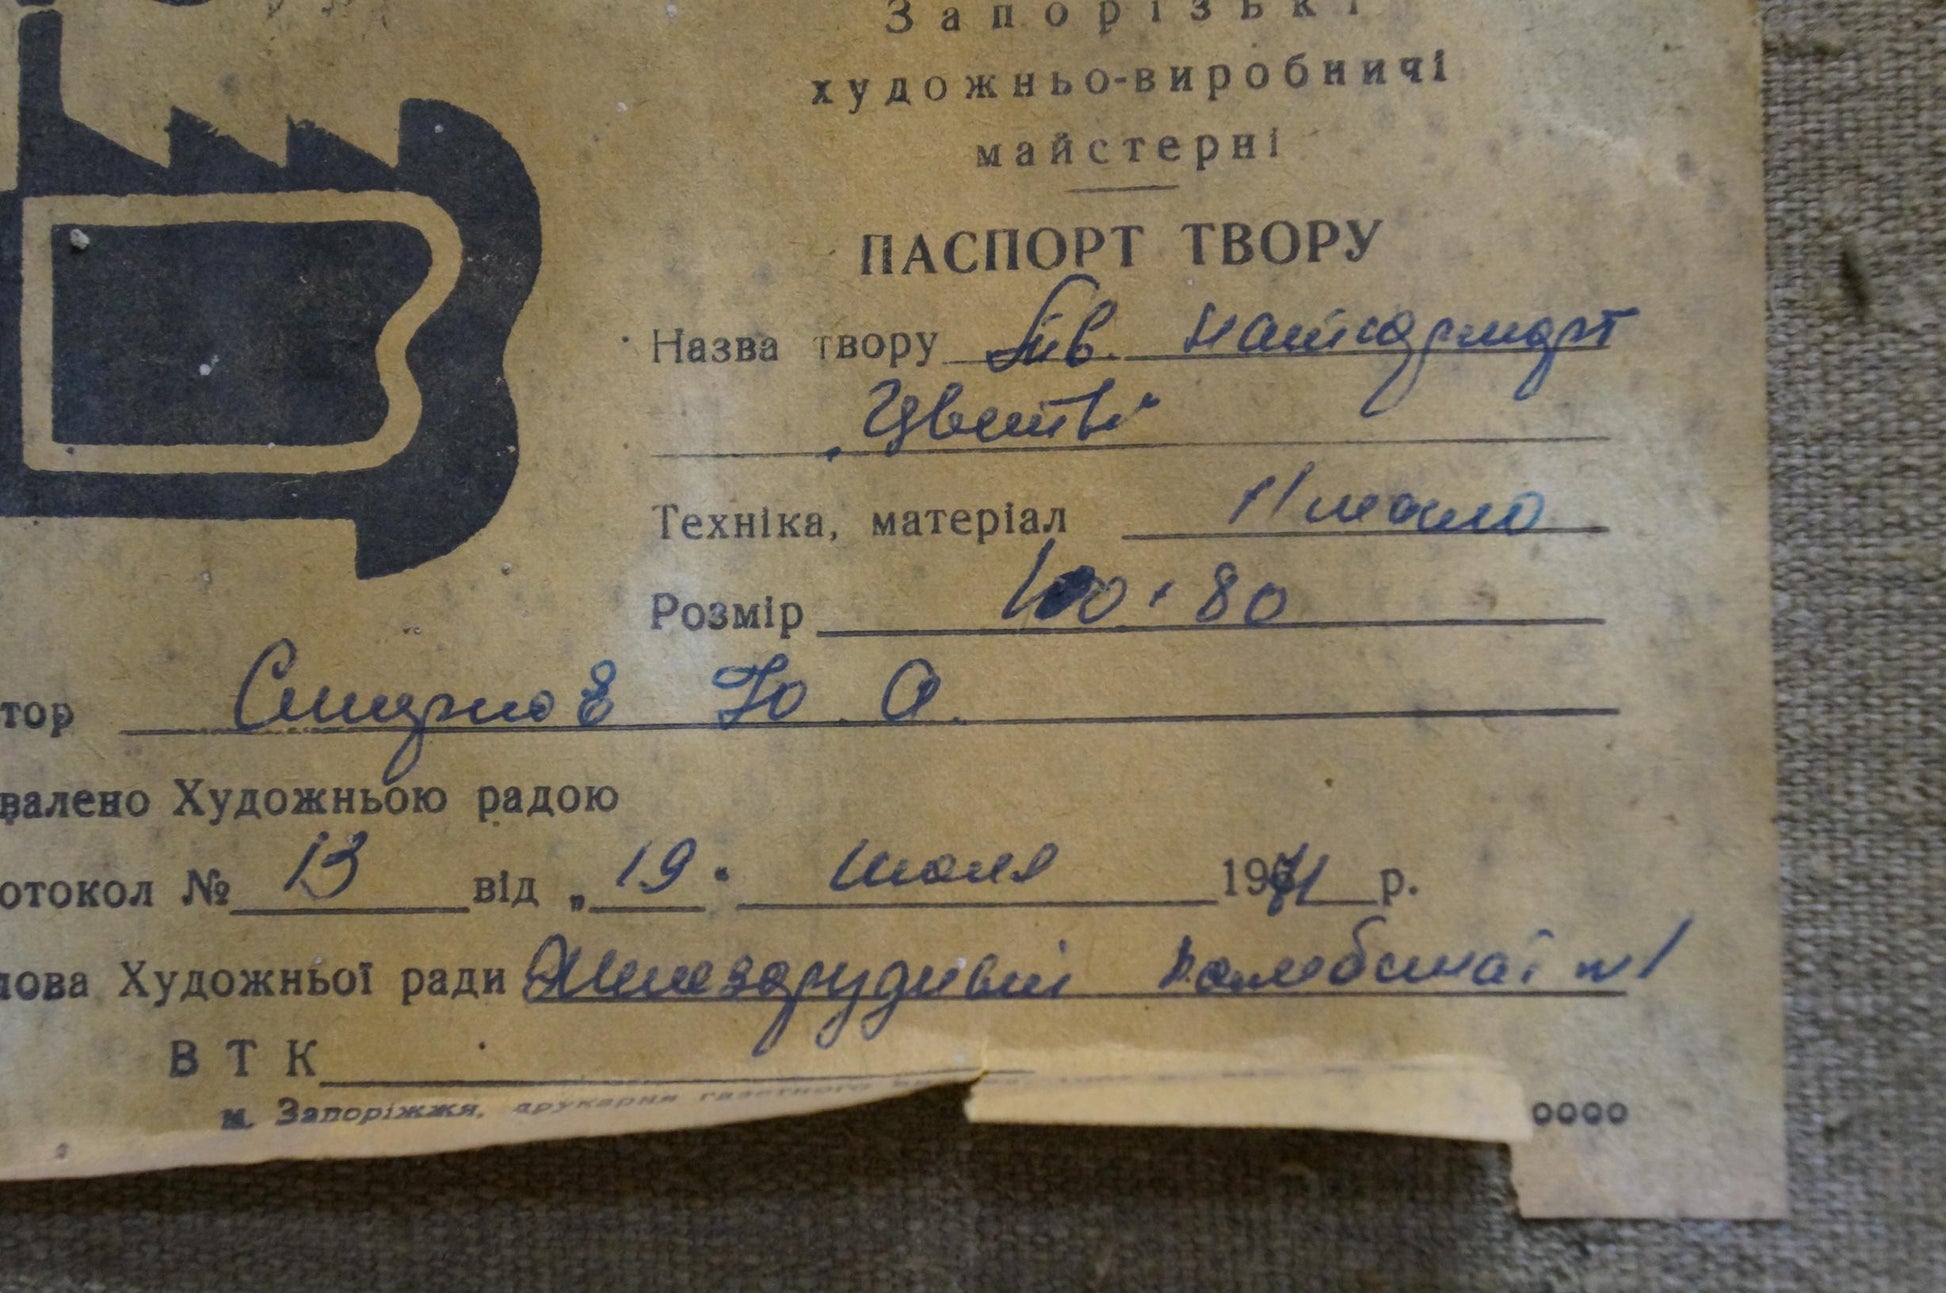 Запорізькі
художньо-виробничі
майстерні
ПАСПОРТ ТВОРУ
Назва твору Тв. натюрморт
Цветы
Техніка, матеріал масло
Розмір 100 · 80
тор Смирнов Ю. А.
валено Художньою радою
отокол № 13 від „19" июля 1971 р.
лова Художньої ради комбинат №1
ВТК
м. Запоріжжя, друкарня газетного
0000